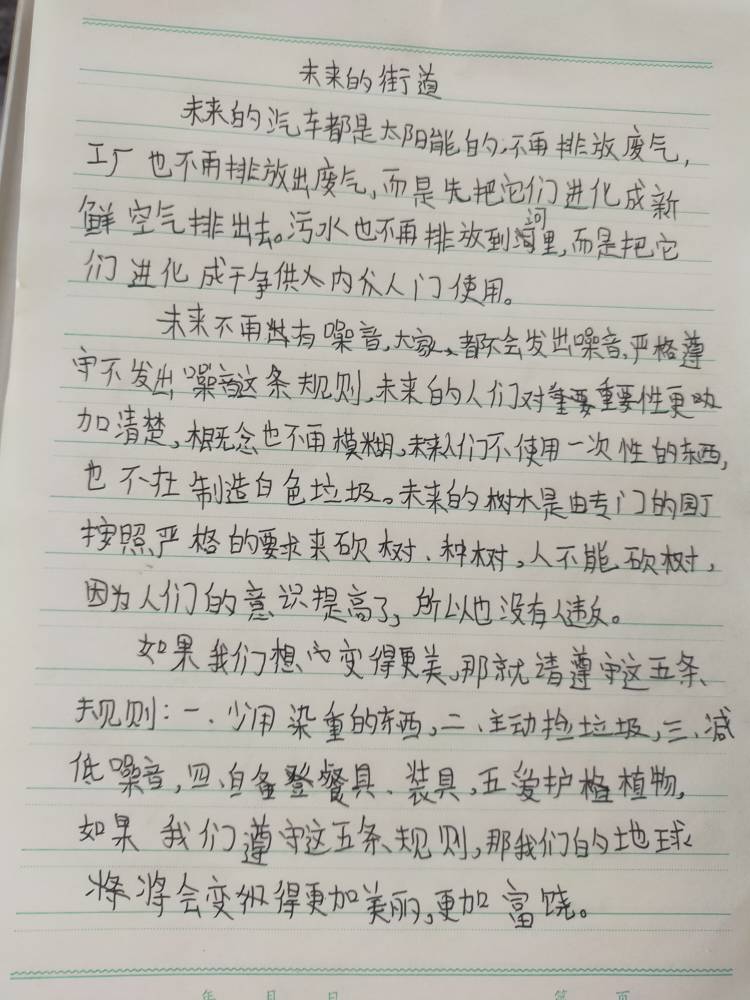 未来的街道
未来的汽车都是太阳能的，不再排放废气，
工厂也不再排放出废气，而是先把它们进化成新
鲜空气排出去。污水也不再排放到河里，而是把它
们进化成干争供大内分人门使用。
未来不再有噪音，大家都不会发出噪音，严格遵
守不发出噪音这条规则，未来的人们对重要性更加
加清楚，概念也不再模糊，未来人们不使用一次性的东西，
也不在制造白色垃圾。未来的树木是由专门的园丁
按照严格的要求来砍树、种树，人不能砍树，
因为人们的意识提高了，所以也没有人违反。
如果我们想变得更美，那就请遵守这五条
规则：一、少用染重的东西，二、主动捡垃圾，三、减
低噪音，四、自备餐具、装具，五爱护植植物，
如果我们遵守这五条规则，那我们的地球
将会变得更加美丽，更加富饶。
年 月 日 第 页